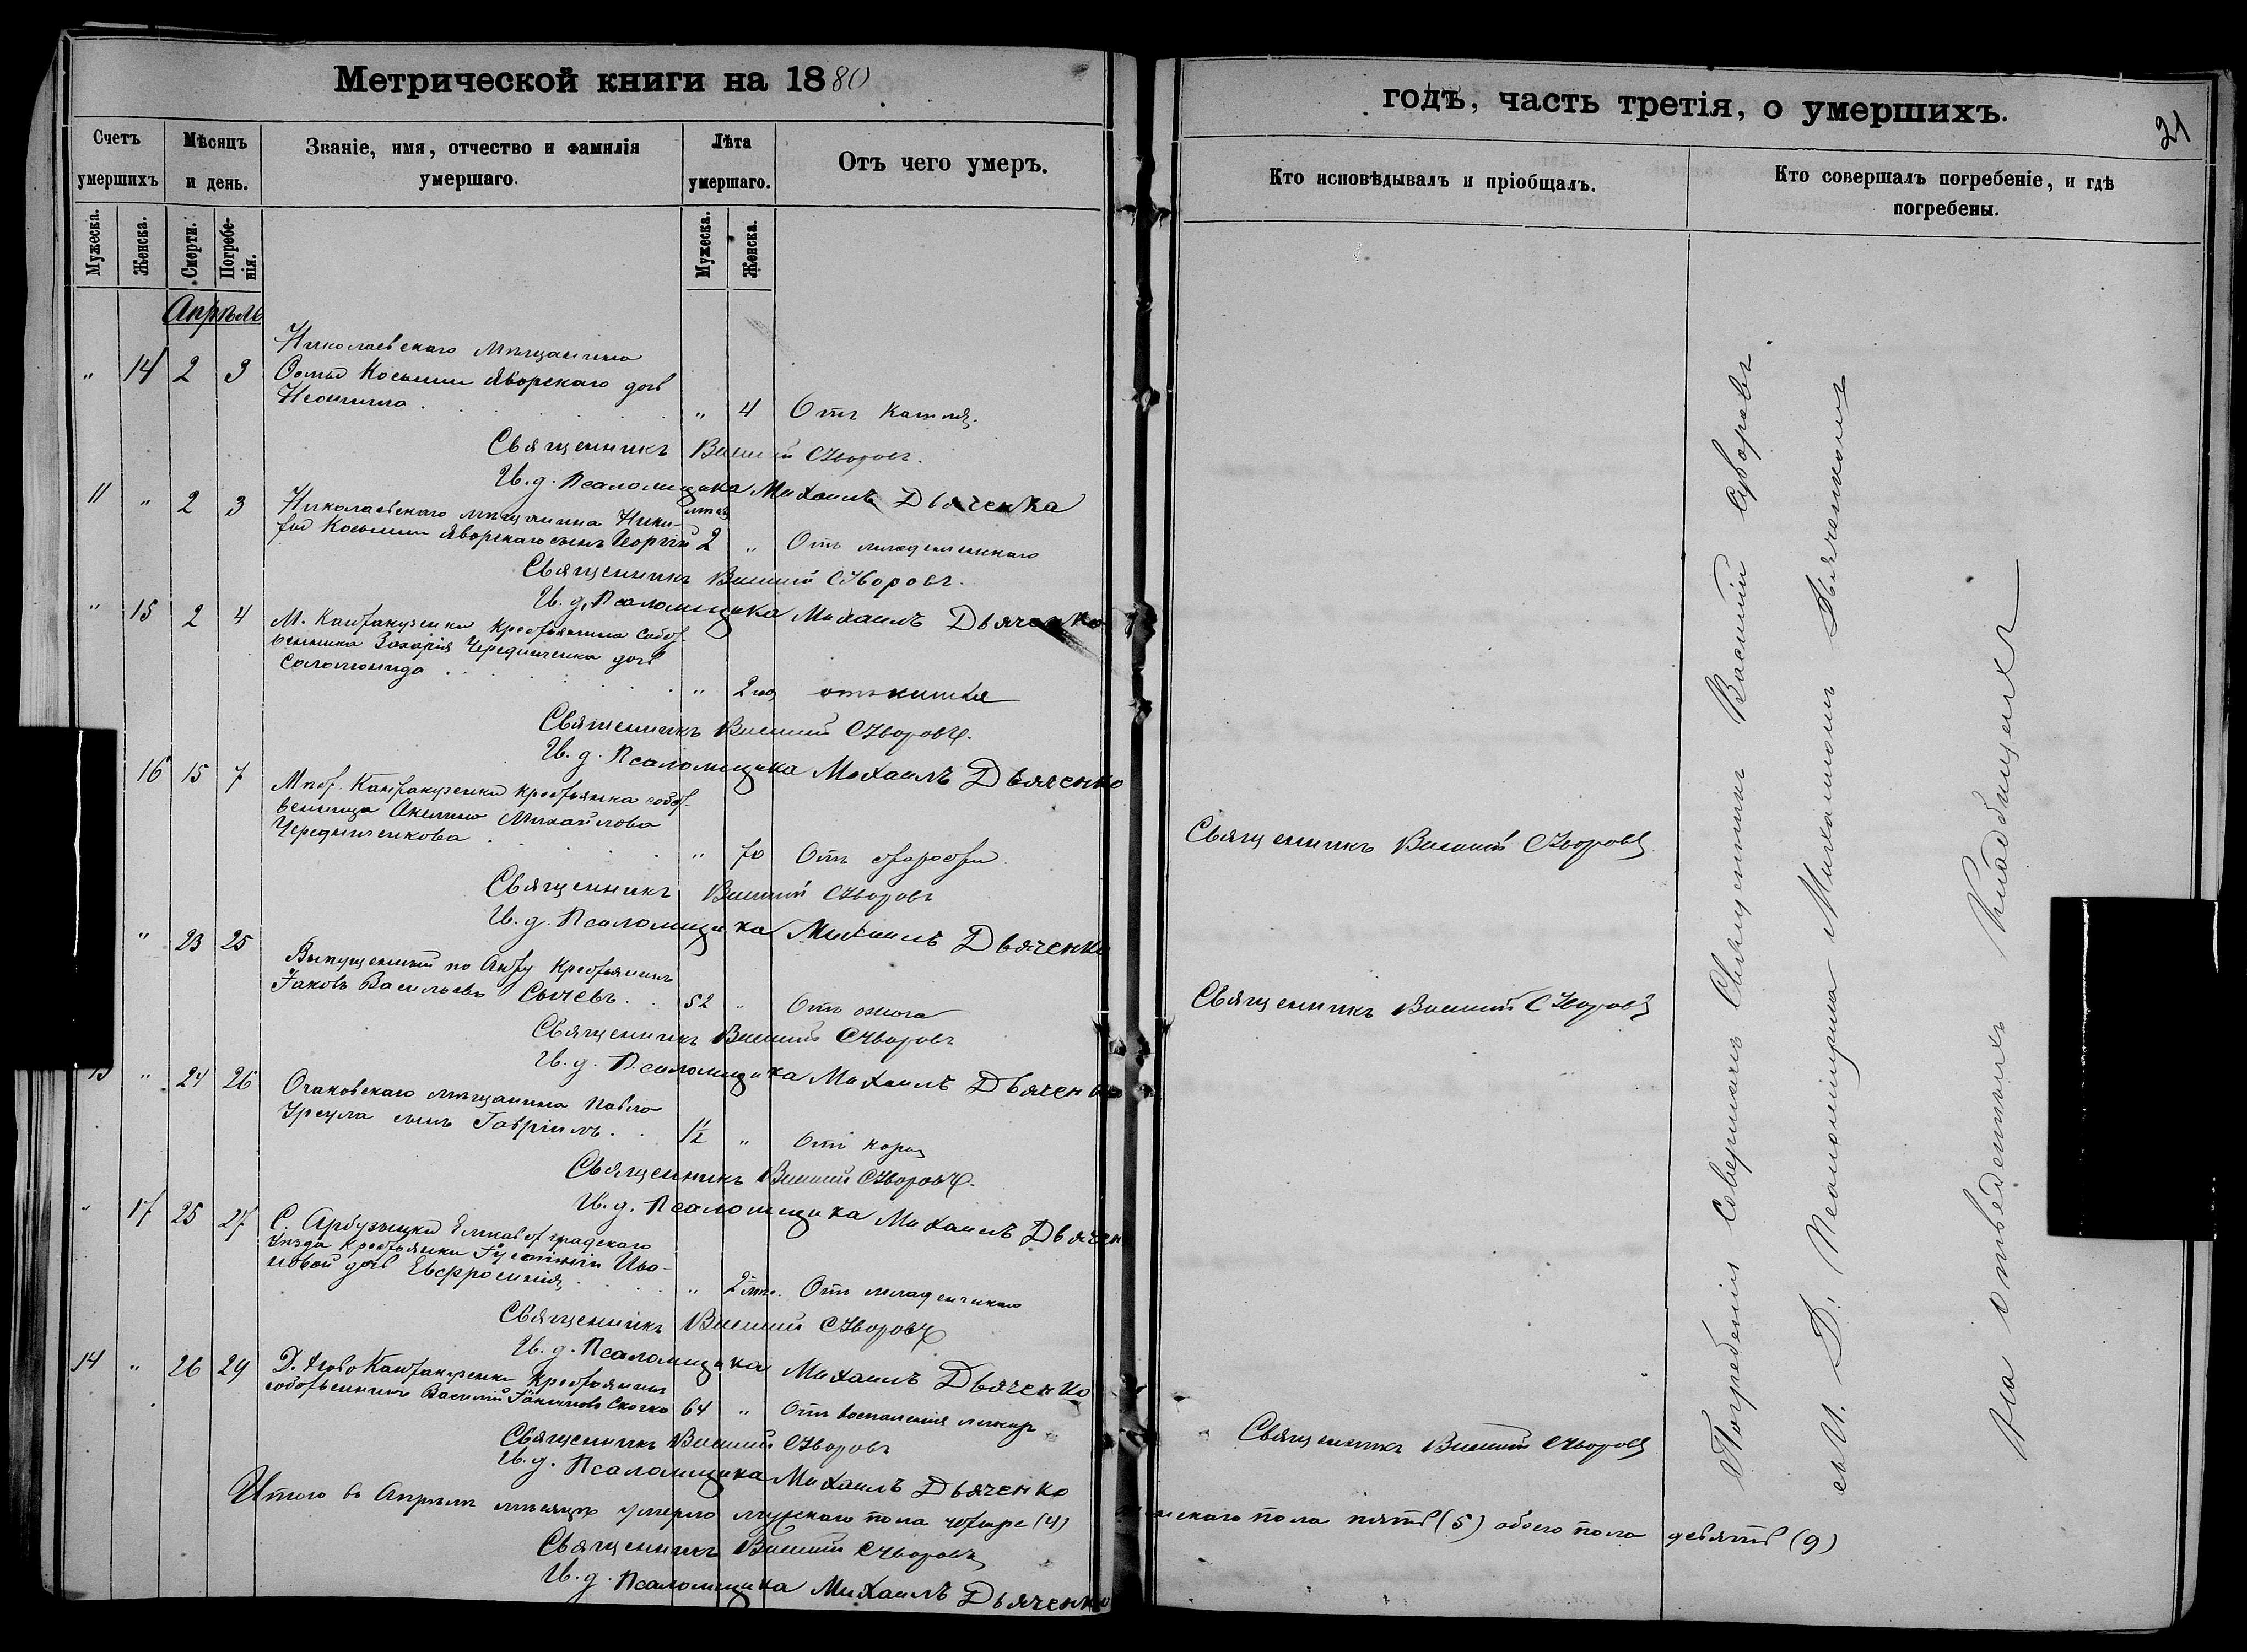 Метрической книги на 1880
годѣ, часть третія, о умершихъ.
21
Счетъ умершихъ
Мѣсяцъ и день.
Званіе, имя, отчество и фамилія умершаго.
Лѣта умершаго.
Отъ чего умеръ.
Кто исповѣдывалъ и пріобщалъ.
Кто совершалъ погребеніе, и гдѣ погребены.
Мужеска.
Женска.
Смерти.
Погребенія.
Мужеска.
Женска.
Апрѣль
Николаевскаго мѣщанина
" 14 2 3 Косьмы Яворскаго дочь
" 4 Отъ кашля.
Священникъ Василій Суворовъ.
И. д. Псаломщика Михаилъ Дьяченко
11 " 2 3 Николаевскаго мѣщанина Ники-
фора Косьмина Яворскаго сынъ Георгій 2 " Отъ младенческаго
Священникъ Василій Суворовъ.
И. д. Псаломщика Михаилъ Дьяченко
" 15 2 4 М. Кантакузенки крестьянина собст-
венника Захарія Чередниченка дочь
Соломонида " 2 отъ кашля
Священникъ Василій Суворовъ.
И. д. Псаломщика Михаилъ Дьяченко
16 15 7 Мѣст. Кантакузенки крестьянка собст-
венница Акилина Михайлова
Чередниченкова " 70 Отъ старости
Священникъ Василій Суворовъ
Священникъ Василій Суворовъ
И. д. Псаломщика Михаилъ Дьяченко
" 23 25 Выпущенный по Акту крестьянинъ
Іаковъ Васильевъ Сычевъ 52 " Отъ ожога
Священникъ Василій Суворовъ
Священникъ Василій Суворовъ
И. д. Псаломщика Михаилъ Дьяченко
13 " 24 26 Очаковскаго мѣщанина Павла
Урсула сынъ Гавріилъ. 1/2 " Отъ кори
Священникъ Василій Суворовъ.
И. д. Псаломщика Михаилъ Дьяченко
" 17 25 27 С. Арбузынки Елисаветградскаго
уѣзда крестьянки Іустиніи Ива-
новой дочь Евфросинія " 2 Отъ младенческаго
Священникъ Василій Суворовъ
И. д. Псаломщика Михаилъ Дьяченко
14 " 26 29 Д. Ново Кантакузенки крестьянинъ
собственникъ Василій 64 " Отъ воспаленія
Священникъ Василій Суворовъ
Священникъ Василій Суворовъ
И. д. Псаломщика Михаилъ Дьяченко
Итого въ Апрѣлѣ мѣсяцѣ умерло мужскаго пола четыре (4)
женскаго пола пять (5) обоего пола девять (9)
Священникъ Василій Суворовъ
И. д. Псаломщика Михаилъ Дьяченко
Погребеніе совершалъ Священникъ Василій Суворовъ
съ И. Д. Псаломщика Михаиломъ Дьяченкомъ
На отведенныхъ кладбищахъ